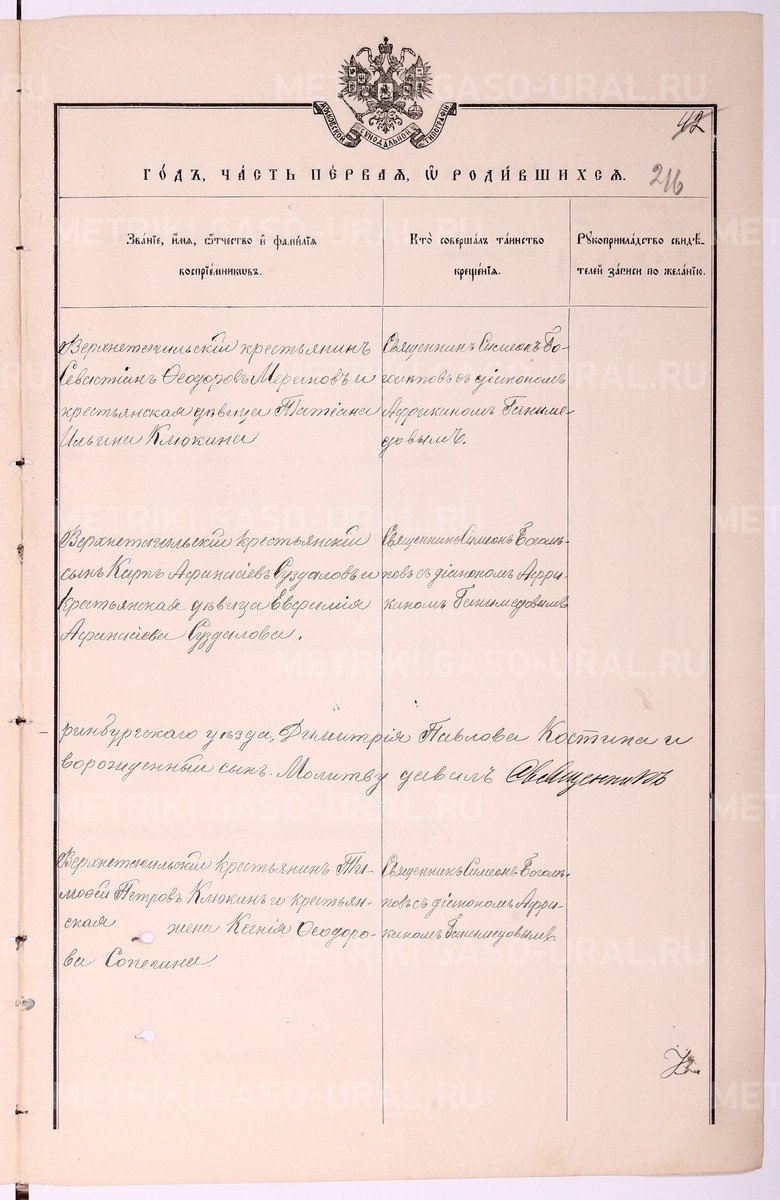 МОСКОВСКОЙ СѴНОДАЛЬНОЙ ТИПОГРАФІИ
42
ГО́ДЪ, ЧА́СТЬ ПЕ́РВАЯ, Ѽ РОДИ́ВШИХСЯ.
216
Зва́нїе, и҆́мя, ѻ҆́тчество и҆ фами́лїя воспрїе́мникѡвъ.
Кто̀ соверша́лъ та́инство креще́нїя.
Рꙋкоприкла́дство свидѣ́телей за́писи по жела́нїю.
Верхнетагильскій крестьянинъ
Севастіанъ Ѳеодоровъ Мериновъ и
крестьянская дѣвица Татіана
Ильина Клюкина
Священникъ Симеонъ Бо-
голѣповъ съ діакономъ
Африканомъ Ганиме-
довымъ.
Верхнетагильскій крестьянскій
сынъ Карпъ Аѳанасіевъ Суздаловъ и
крестьянская дѣвица Евѳимія
Аѳанасіева Суздалова.
Священникъ Симеонъ Боголѣ-
повъ съ діакономъ Афри-
каномъ Ганимедовымъ
ринбургскаго уѣзда, Димитрія Павлова Костина и
ворожденный сынъ. Молитву давалъ Священникъ
Верхнетагильскій крестьянинъ Ти-
моѳей Петровъ Клюкинъ и крестьян-
ская жена Ксенія Ѳеодоро-
ва Сопегина.
Священникъ Симеонъ Боголѣ-
повъ съ діакономъ Афри-
каномъ Ганимедовымъ.
METRIKI.GASO-URAL.RU